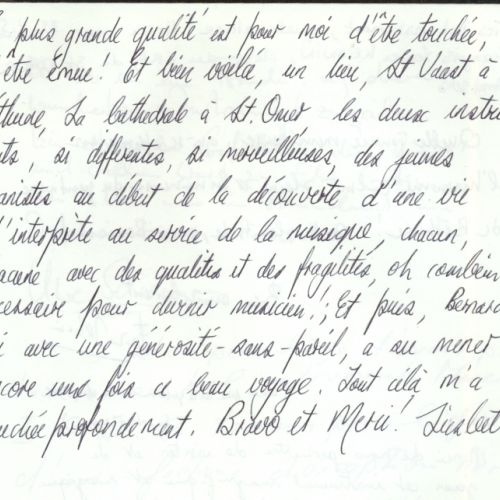 plus grande qualité est pour moi d'être touchée,
être émue! Et bien voilà, un lieu, St Vaast à
thune, La cathedrale à St. Omer les deux instru
ts, si differentes, si merveilleuses, des jeunes
anistes au début de la découverte d'une vie
d'interprète au service de la musique, chacun,
acune avec des qualités et des fragilités, oh combien
cessaire pour devenir musicien!; Et puis, Bernard
i avec une générosité-sans-pareil, a su mener
core une fois ce beau voyage. Tout celà m'a
uchée profondement. Bravo et Merci!